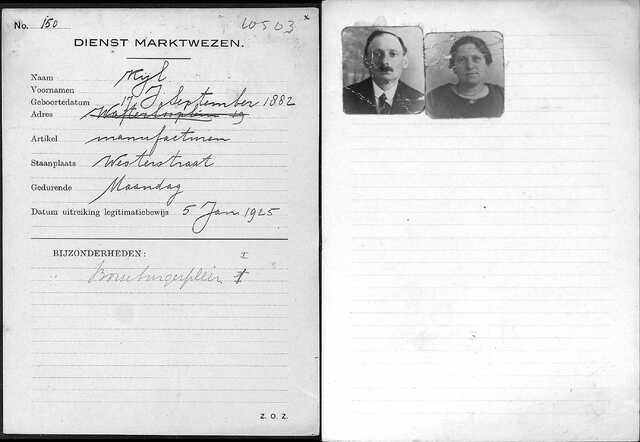 No. 150 60503 x
DIENST MARKTWEZEN.
Naam Nyl
Voornamen J.
Geboortedatum 17 September 1882
Adres 19
Artikel manufacturen
Staanplaats Westerstraat
Gedurende Maandag
Datum uitreiking legitimatiebewijs 5 Jan 1925
BIJZONDERHEDEN:
Z. O. Z.